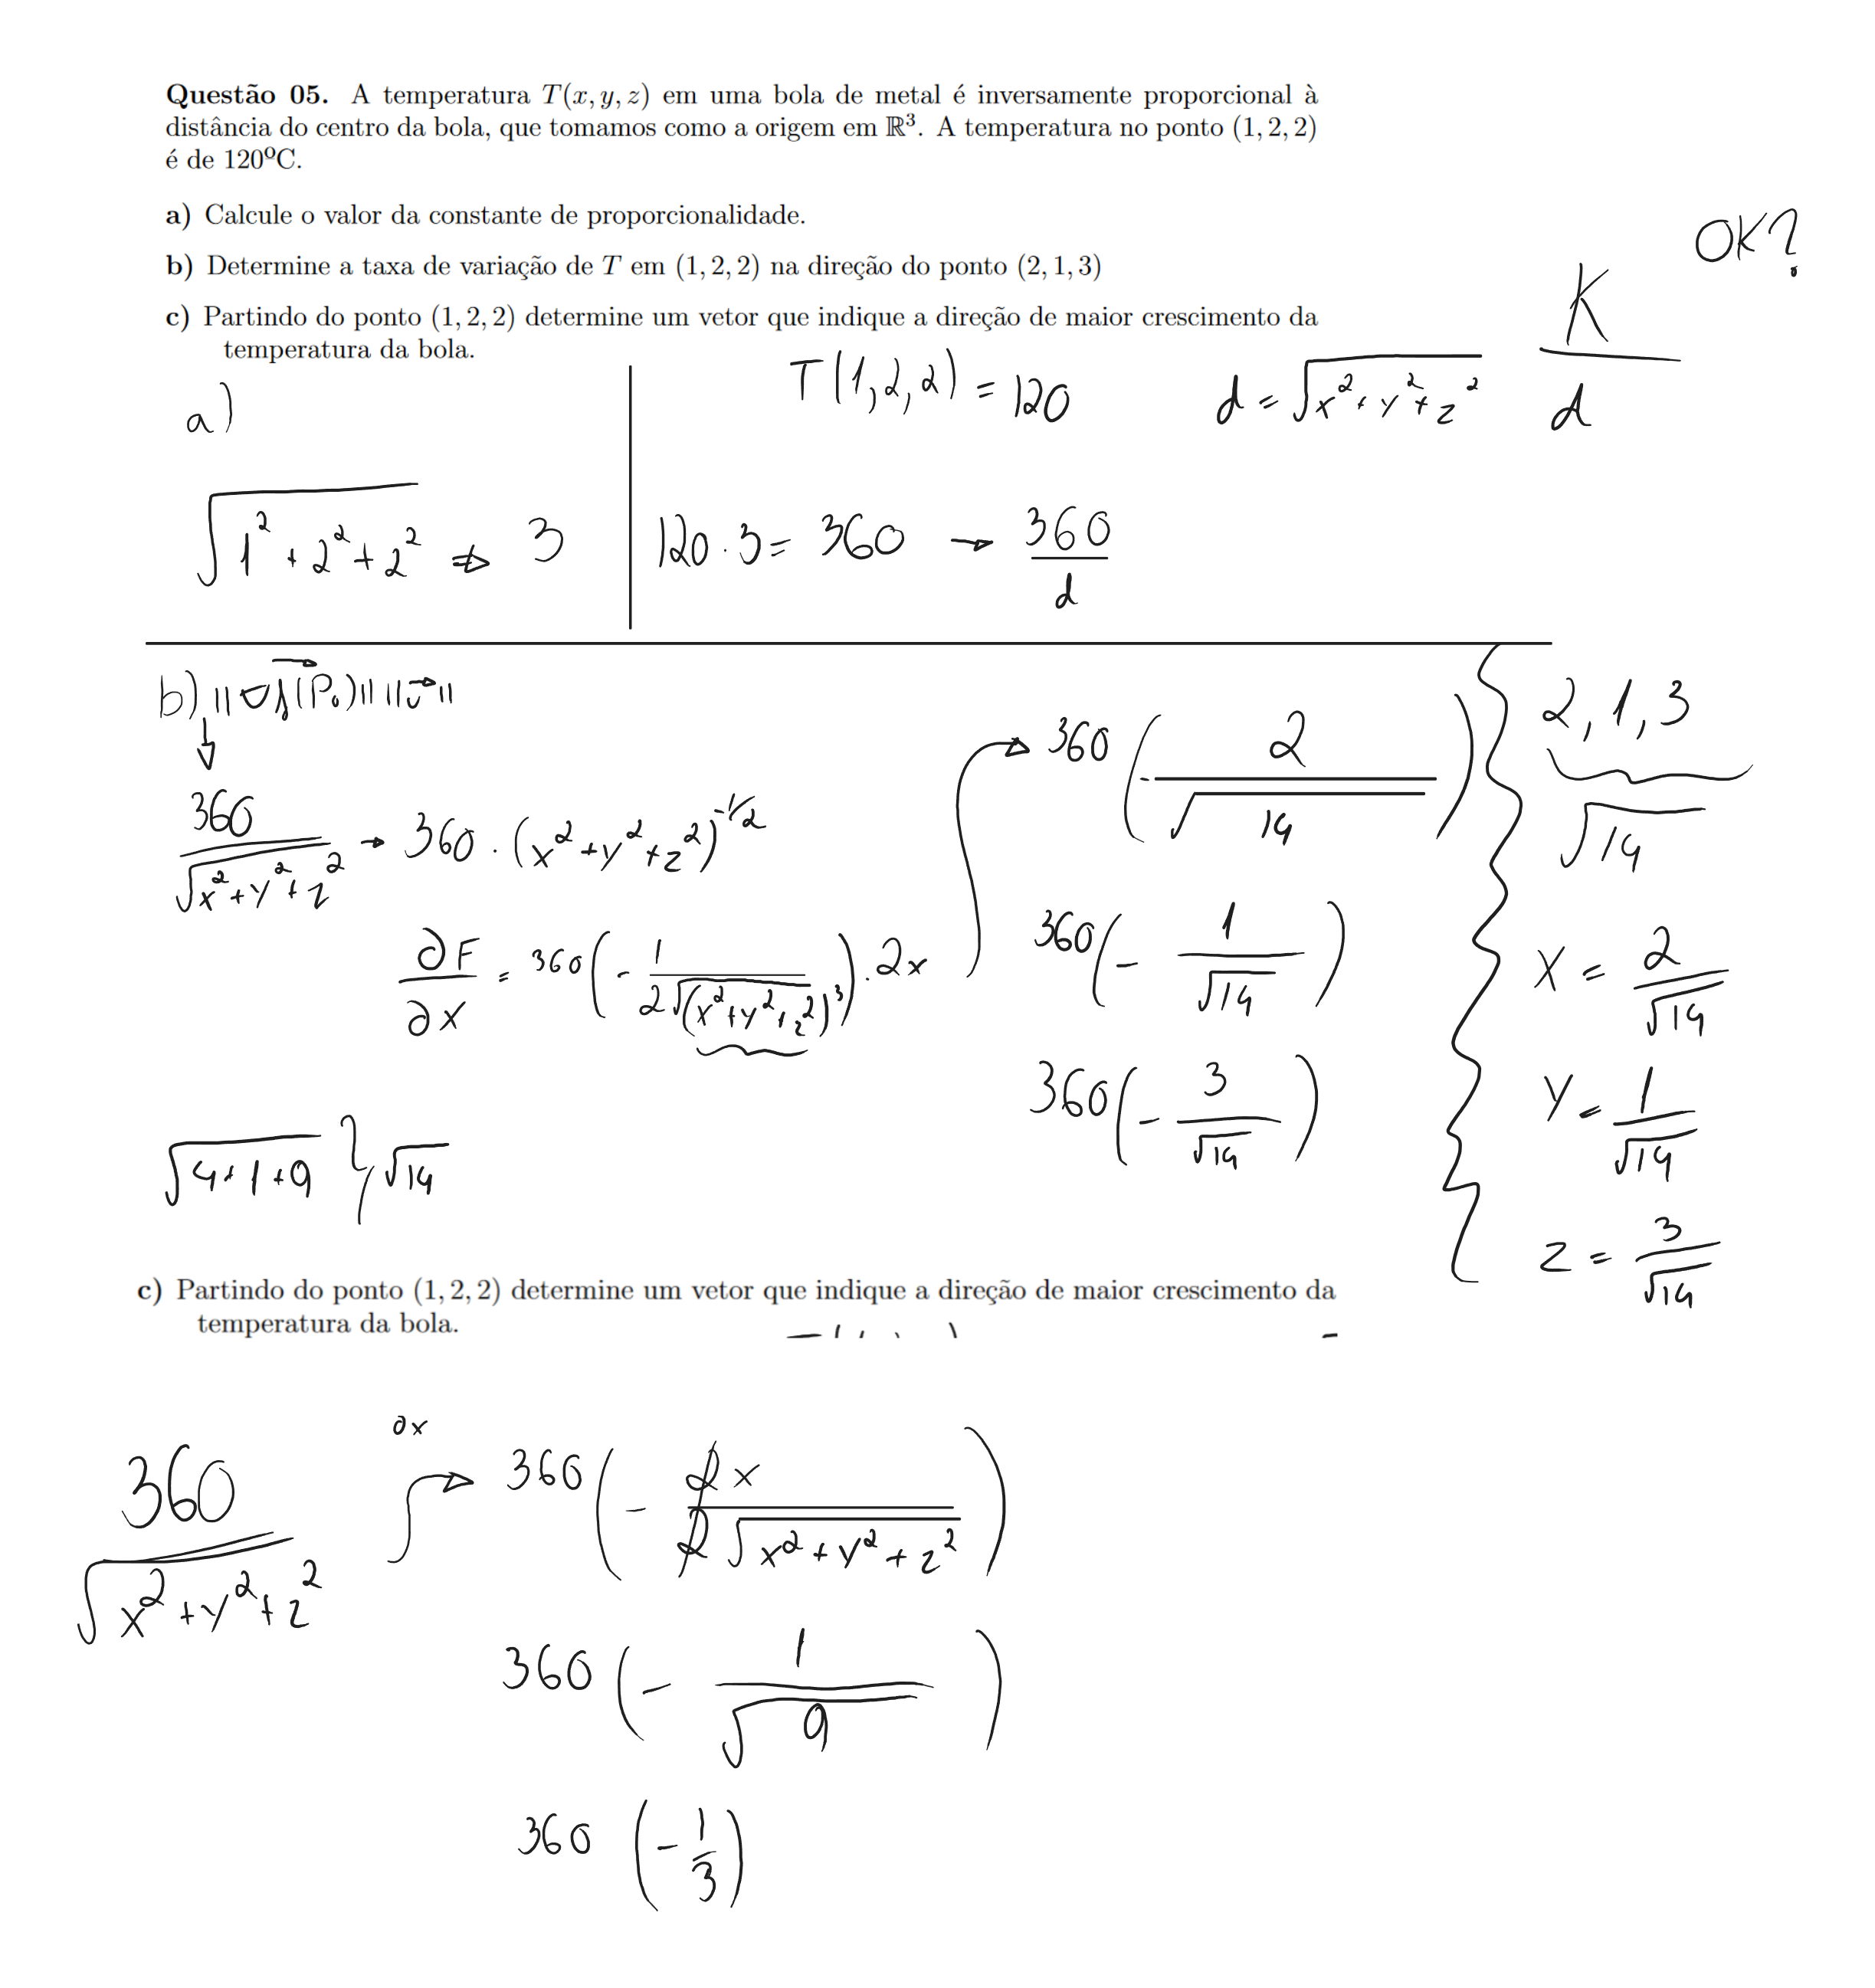 Questão 05. A temperatura T(x, y, z) em uma bola de metal é inversamente proporcional à
distância do centro da bola, que tomamos como a origem em ℝ³. A temperatura no ponto (1, 2, 2)
é de 120ºC.
a) Calcule o valor da constante de proporcionalidade.
b) Determine a taxa de variação de T em (1, 2, 2) na direção do ponto (2, 1, 3)
c) Partindo do ponto (1, 2, 2) determine um vetor que indique a direção de maior crescimento da
temperatura da bola.
OK?
K/d
a)
T(1,2,2) = 120
d = √(x² + y² + z²)
√(1² + 2² + 2²) ⇒ 3
120 · 3 = 360 → 360/d
b) ||∇f(P₀)|| ||v||
360/√(x² + y² + z²) → 360 · (x² + y² + z²)^(-1/2)
∂F/∂x = 360(- 1/(2√(x² + y² + z²)³)) · 2x
360(- 2/√14)
360(- 1/√14)
360(- 3/√14)
√(4+1+9) } √14
2, 1, 3
√14
X = 2/√14
Y = 1/√14
Z = 3/√14
c) Partindo do ponto (1, 2, 2) determine um vetor que indique a direção de maior crescimento da
temperatura da bola.
360/√(x² + y² + z²)
∂x
360(- 2x/(2√(x² + y² + z²)))
360(- 1/√9)
360(- 1/3)